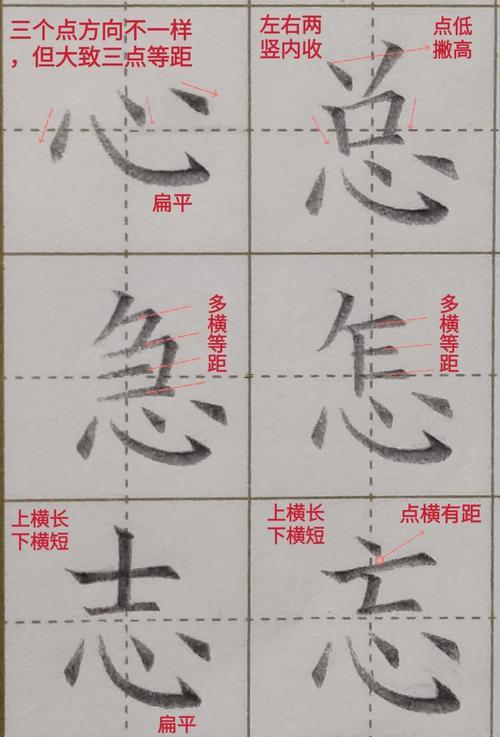 三个点方向不一样
，但大致三点等距
心
扁平
左右两
竖内收
点低
撇高
总
急
多横等距
怎
多横等距
上横长
下横短
志
扁平
上横长
下横短
点横有距
忘